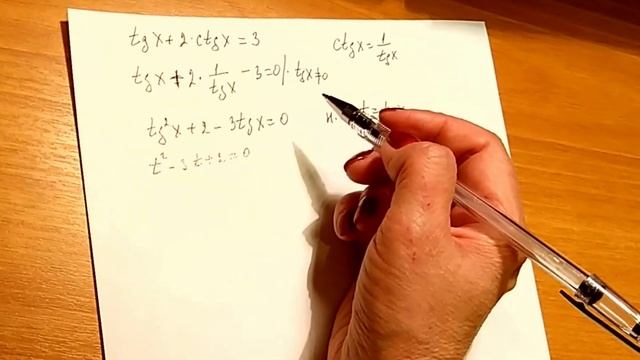 tgx + 2·ctgx = 3
ctgx = 1/tgx
tgx + 2·1/tgx - 3 = 0 /·tgx≠0
tg²x + 2 - 3tgx = 0
t² - 3t + 2 = 0